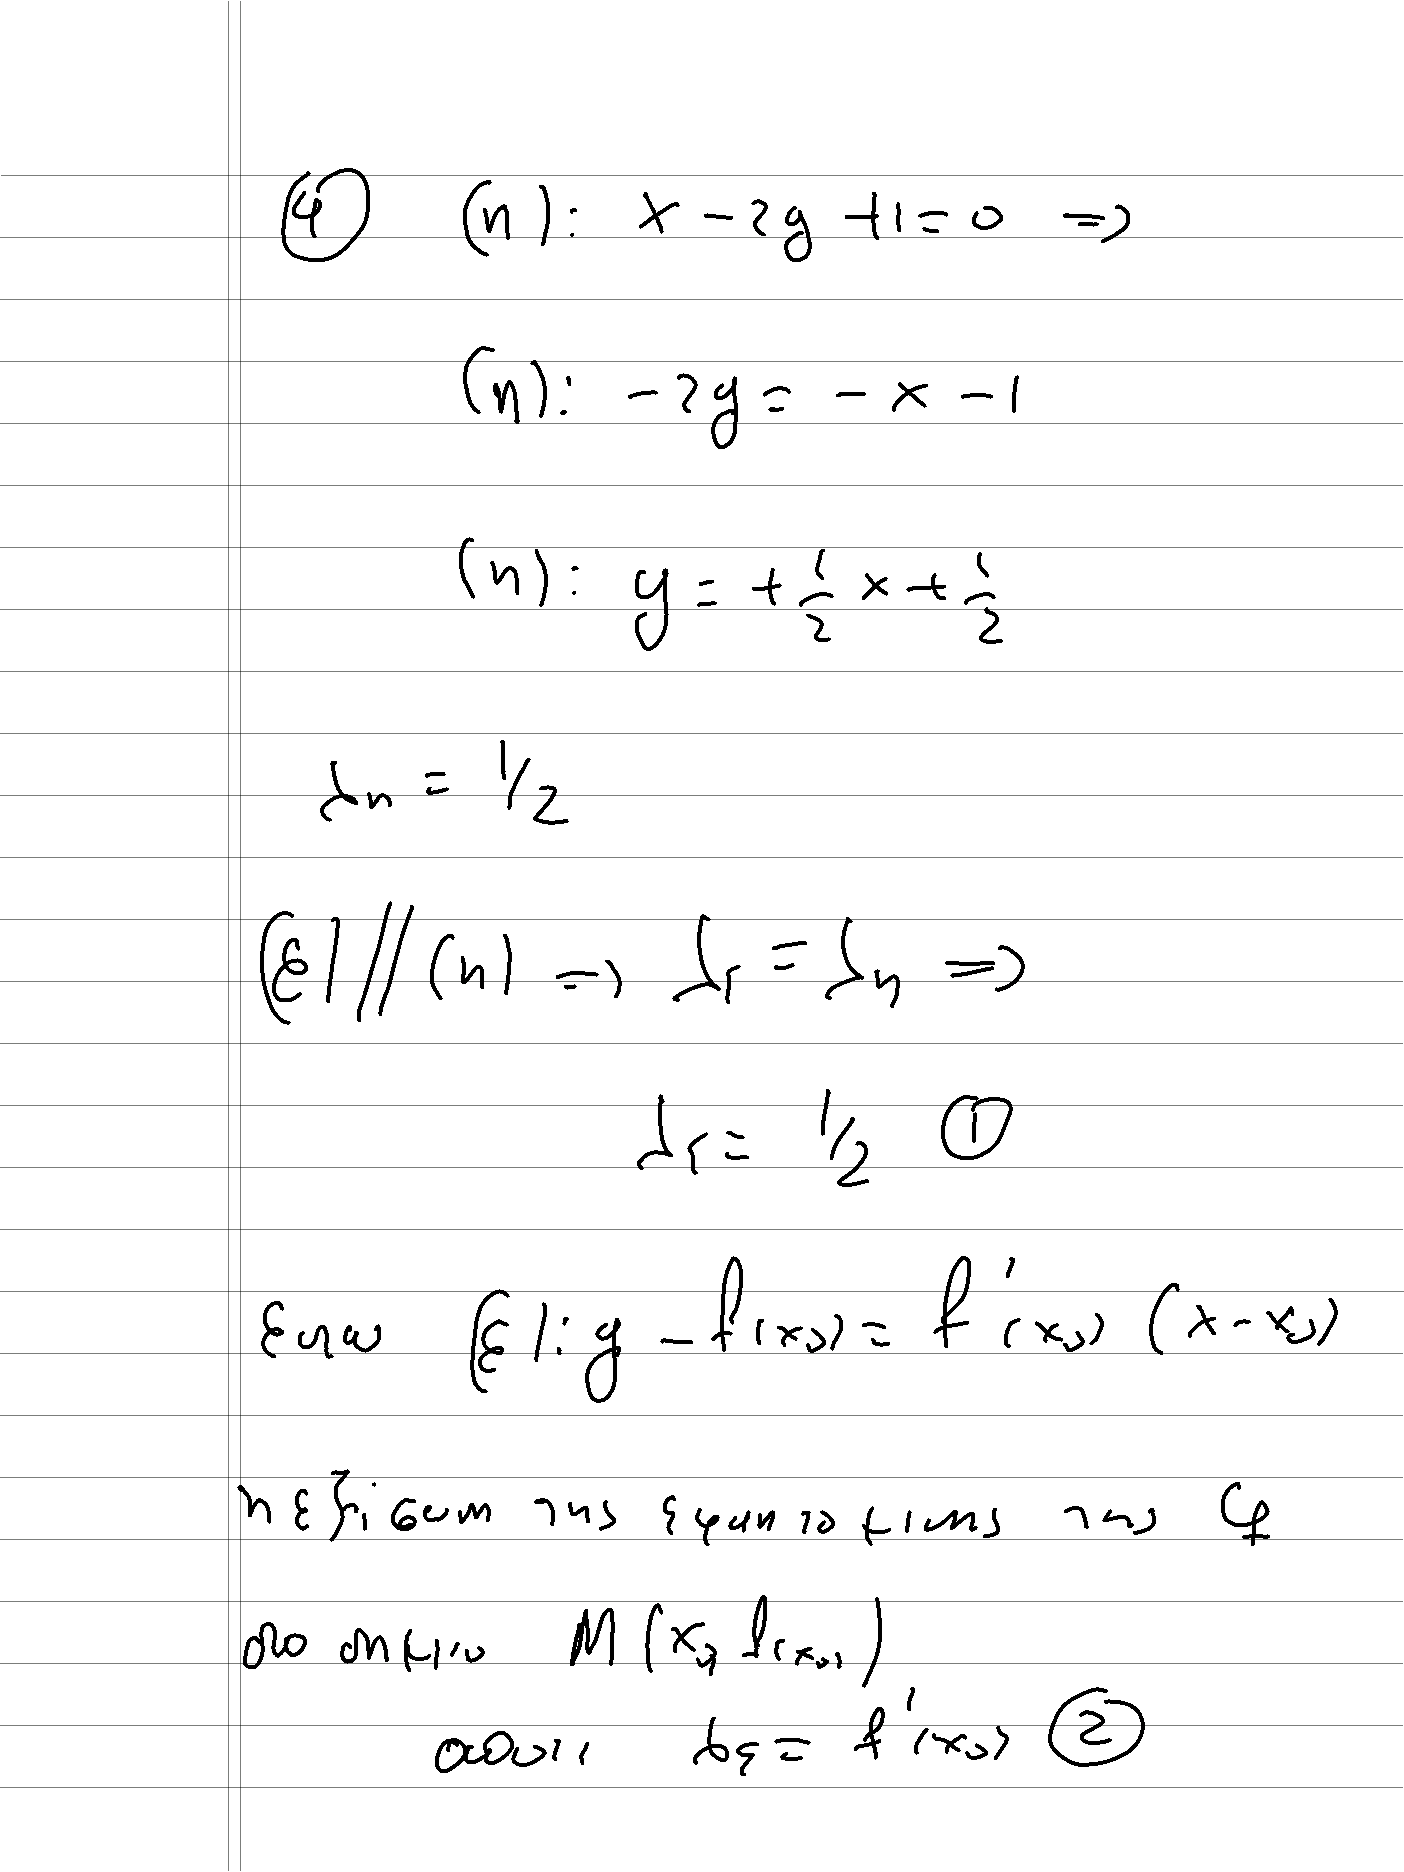 ④ (η): x - 2y + 1 = 0 =>
(η): - 2y = - x - 1
(η): y = + 1/2 x + 1/2
λη = 1/2
(ε) // (η) => λε = λη =>
λε = 1/2 ①
Εστω (ε): y - f(x₀) = f'(x₀) (x - x₀)
η εξίσωση της εφαπτομενης της Cf
στο σημειο M(x₀, f(x₀))
λε = f'(x₀) ②